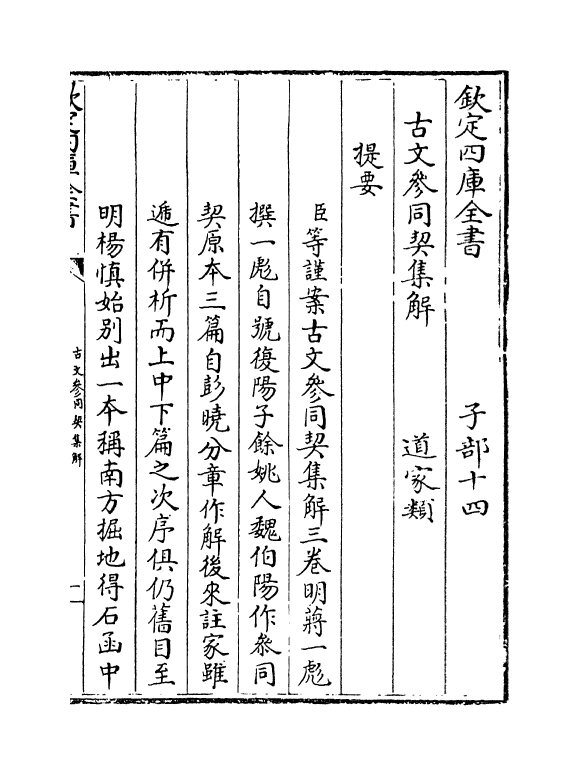 欽定四庫全書　子部十四
古文參同契集解　道家類
提要
臣等謹案古文參同契集解三卷明蔣一彪
撰一彪自號復陽子餘姚人魏伯陽作參同
契原本三篇自彭曉分章作解後來註家雖
遞有併析而上中下篇之次序俱仍舊目至
明楊慎始別出一本稱南方掘地得石函中
欽定四庫全書
古文參同契集解
一